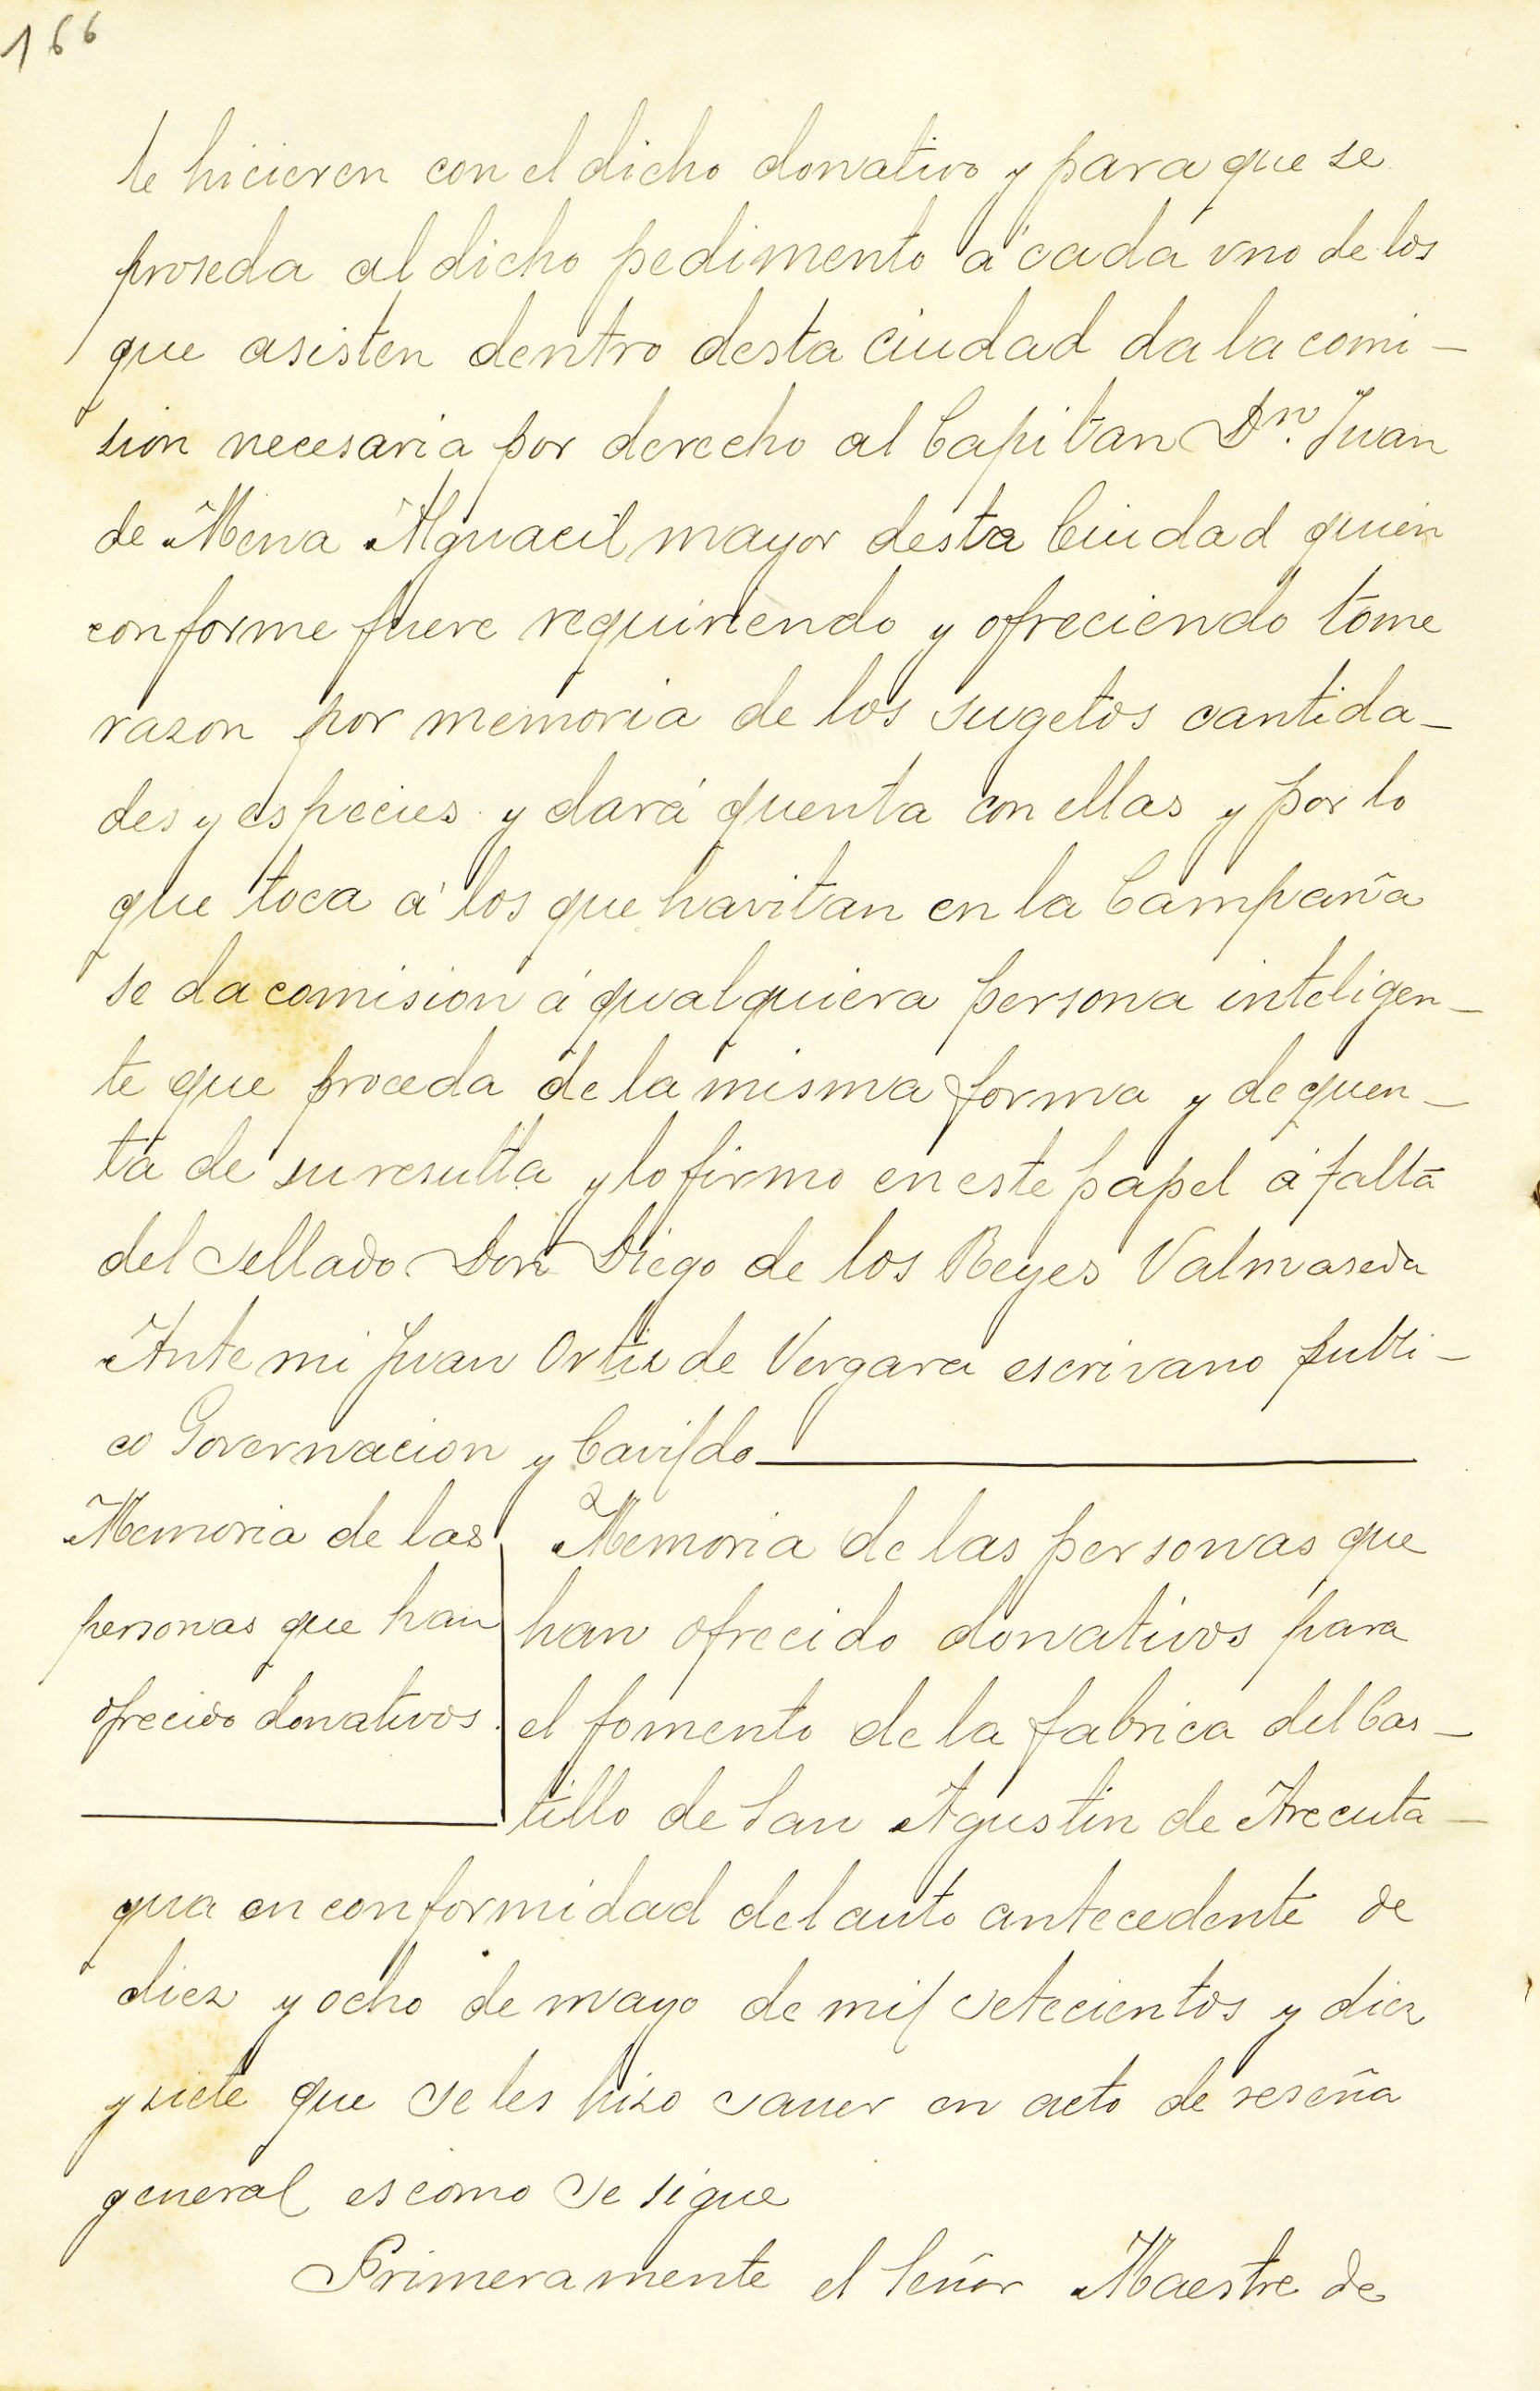 166
te hicieren con el dicho donativo y para que se
proseda al dicho pedimento á cada vno de los
que asisten dentro desta Ciudad da la comi-
sion necesaria por derecho al Capitan Dn. Juan
de Mena Alguacil mayor desta Ciudad quien
conforme fuere requiriendo y ofreciendo tome
razon por memoria de los sugetos cantida-
des y especies y dará quenta con ellas y por lo
que toca á los que havitan en la Campaña
se da comision á qualquiera persona inteligen-
te que proceda de la misma forma y de quen-
ta de su resulta y lo firmo en este papel á falta
del sellado Don Diego de los Reyes Valmaseda
Ante mi Juan Ortiz de Vergara escrivano publi-
co Governacion y Cavildo
Memoria de las
personas que han
ofrecido donativos.
Memoria de las personas que
han ofrecido donativos para
el fomento de la fabrica del Cas-
tillo de San Agustin de Arecuta-
qua en conformidad del auto antecedente de
diez y ocho de mayo de mil setecientos y diez
y siete que se les hizo sauer en acto de reseña
general es como se sigue
Primeramente el Señor Maestre de